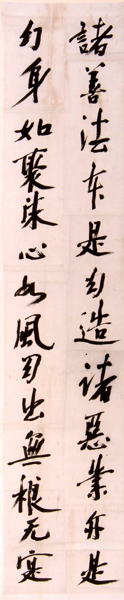 諸善法本是幻造諸惡業亦是
幻身如聚沫心如風幻出無根无實